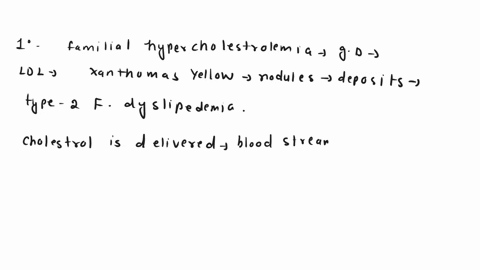 1°. familial hypercholestrolemia → g.D →
LDL → xanthomas yellow → nodules → deposits →
type-2 F. dyslipedemia.
cholestrol is delivered → blood strear